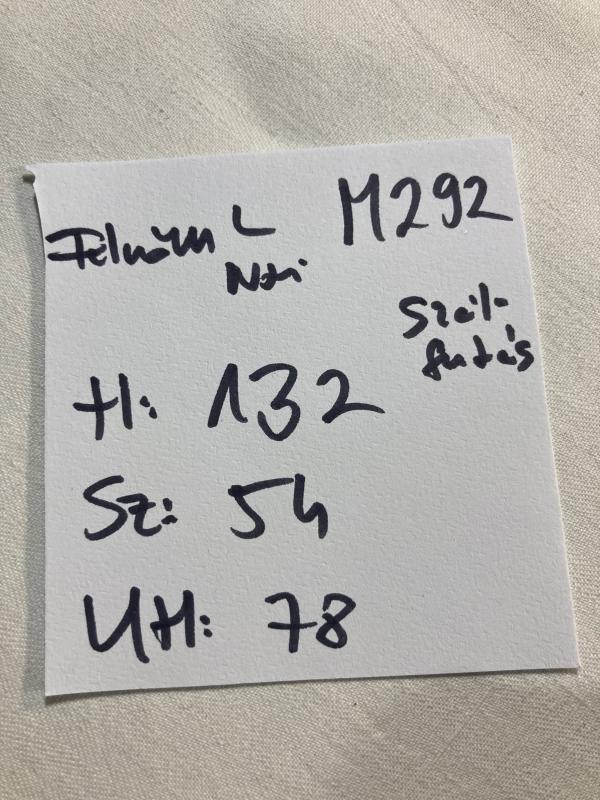 Felnőtt L M292
Női
Szál-
futás
H: 132
Sz: 54
UH: 78